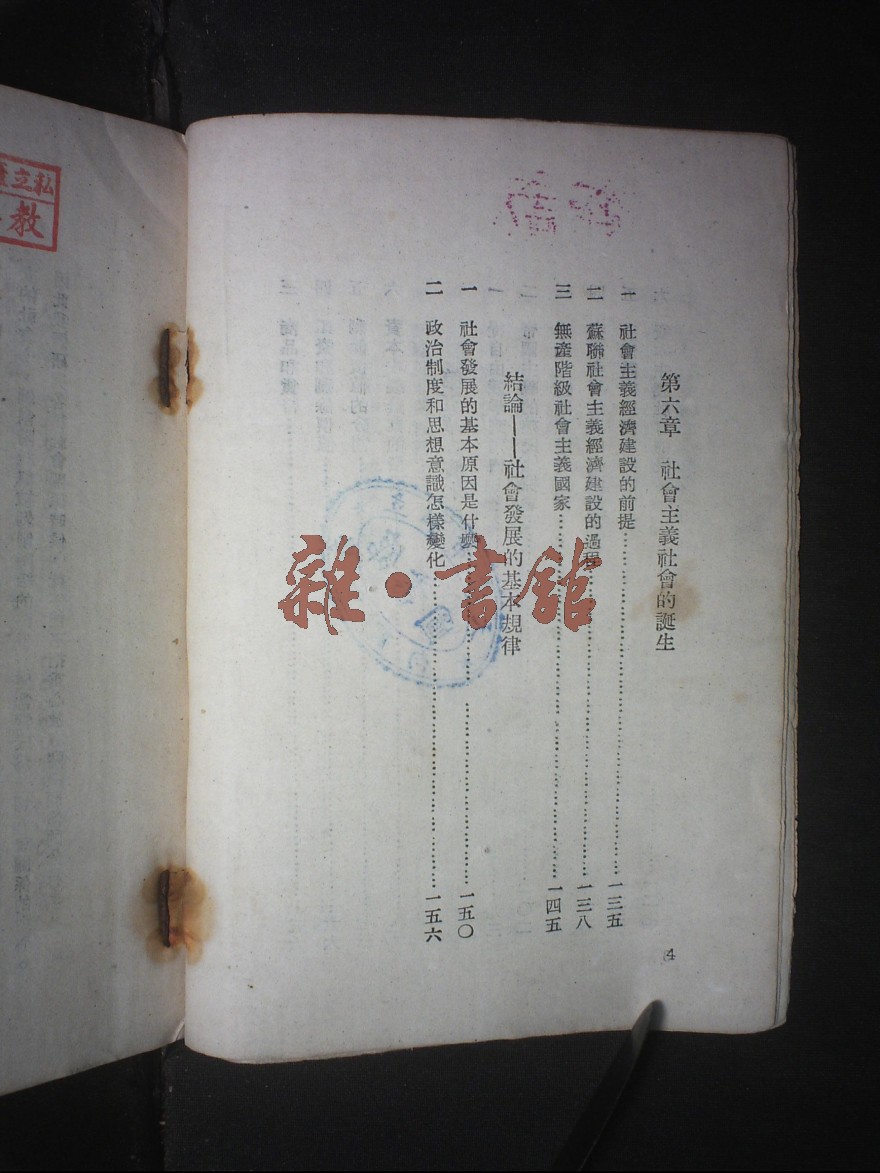 第六章　社會主義社會的誕生
一　社會主義經濟建設的前提……一三五
二　蘇聯社會主義經濟建設的過程……一三八
三　無產階級社會主義國家……一四五
結論——社會發展的基本規律
一　社會發展的基本原因是什麼……一五〇
二　政治制度和思想意識怎樣變化……一五六
4
雜·書館
私立
教